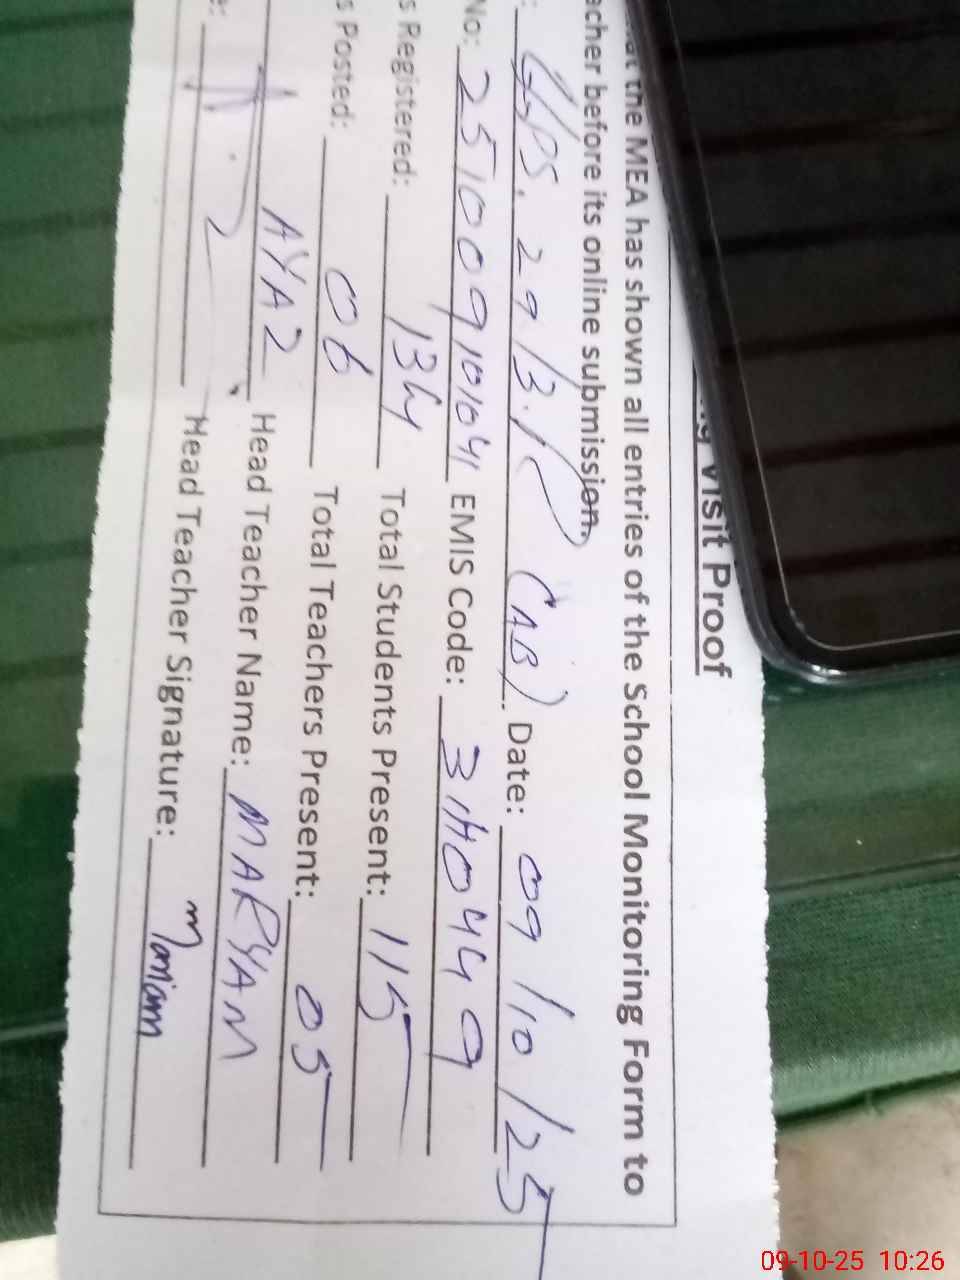 ng Visit Proof
at the MEA has shown all entries of the School Monitoring Form to
acher before its online submission.
: G/PS. 29/3.R (AB) Date: 09/10/25
No: 251009101041 EMIS Code: 31140449
s Registered: 134 Total Students Present: 115
s Posted: 06 Total Teachers Present: 05
AYAZ Head Teacher Name: MARYAM
e: Head Teacher Signature: Mariam
09-10-25 10:26